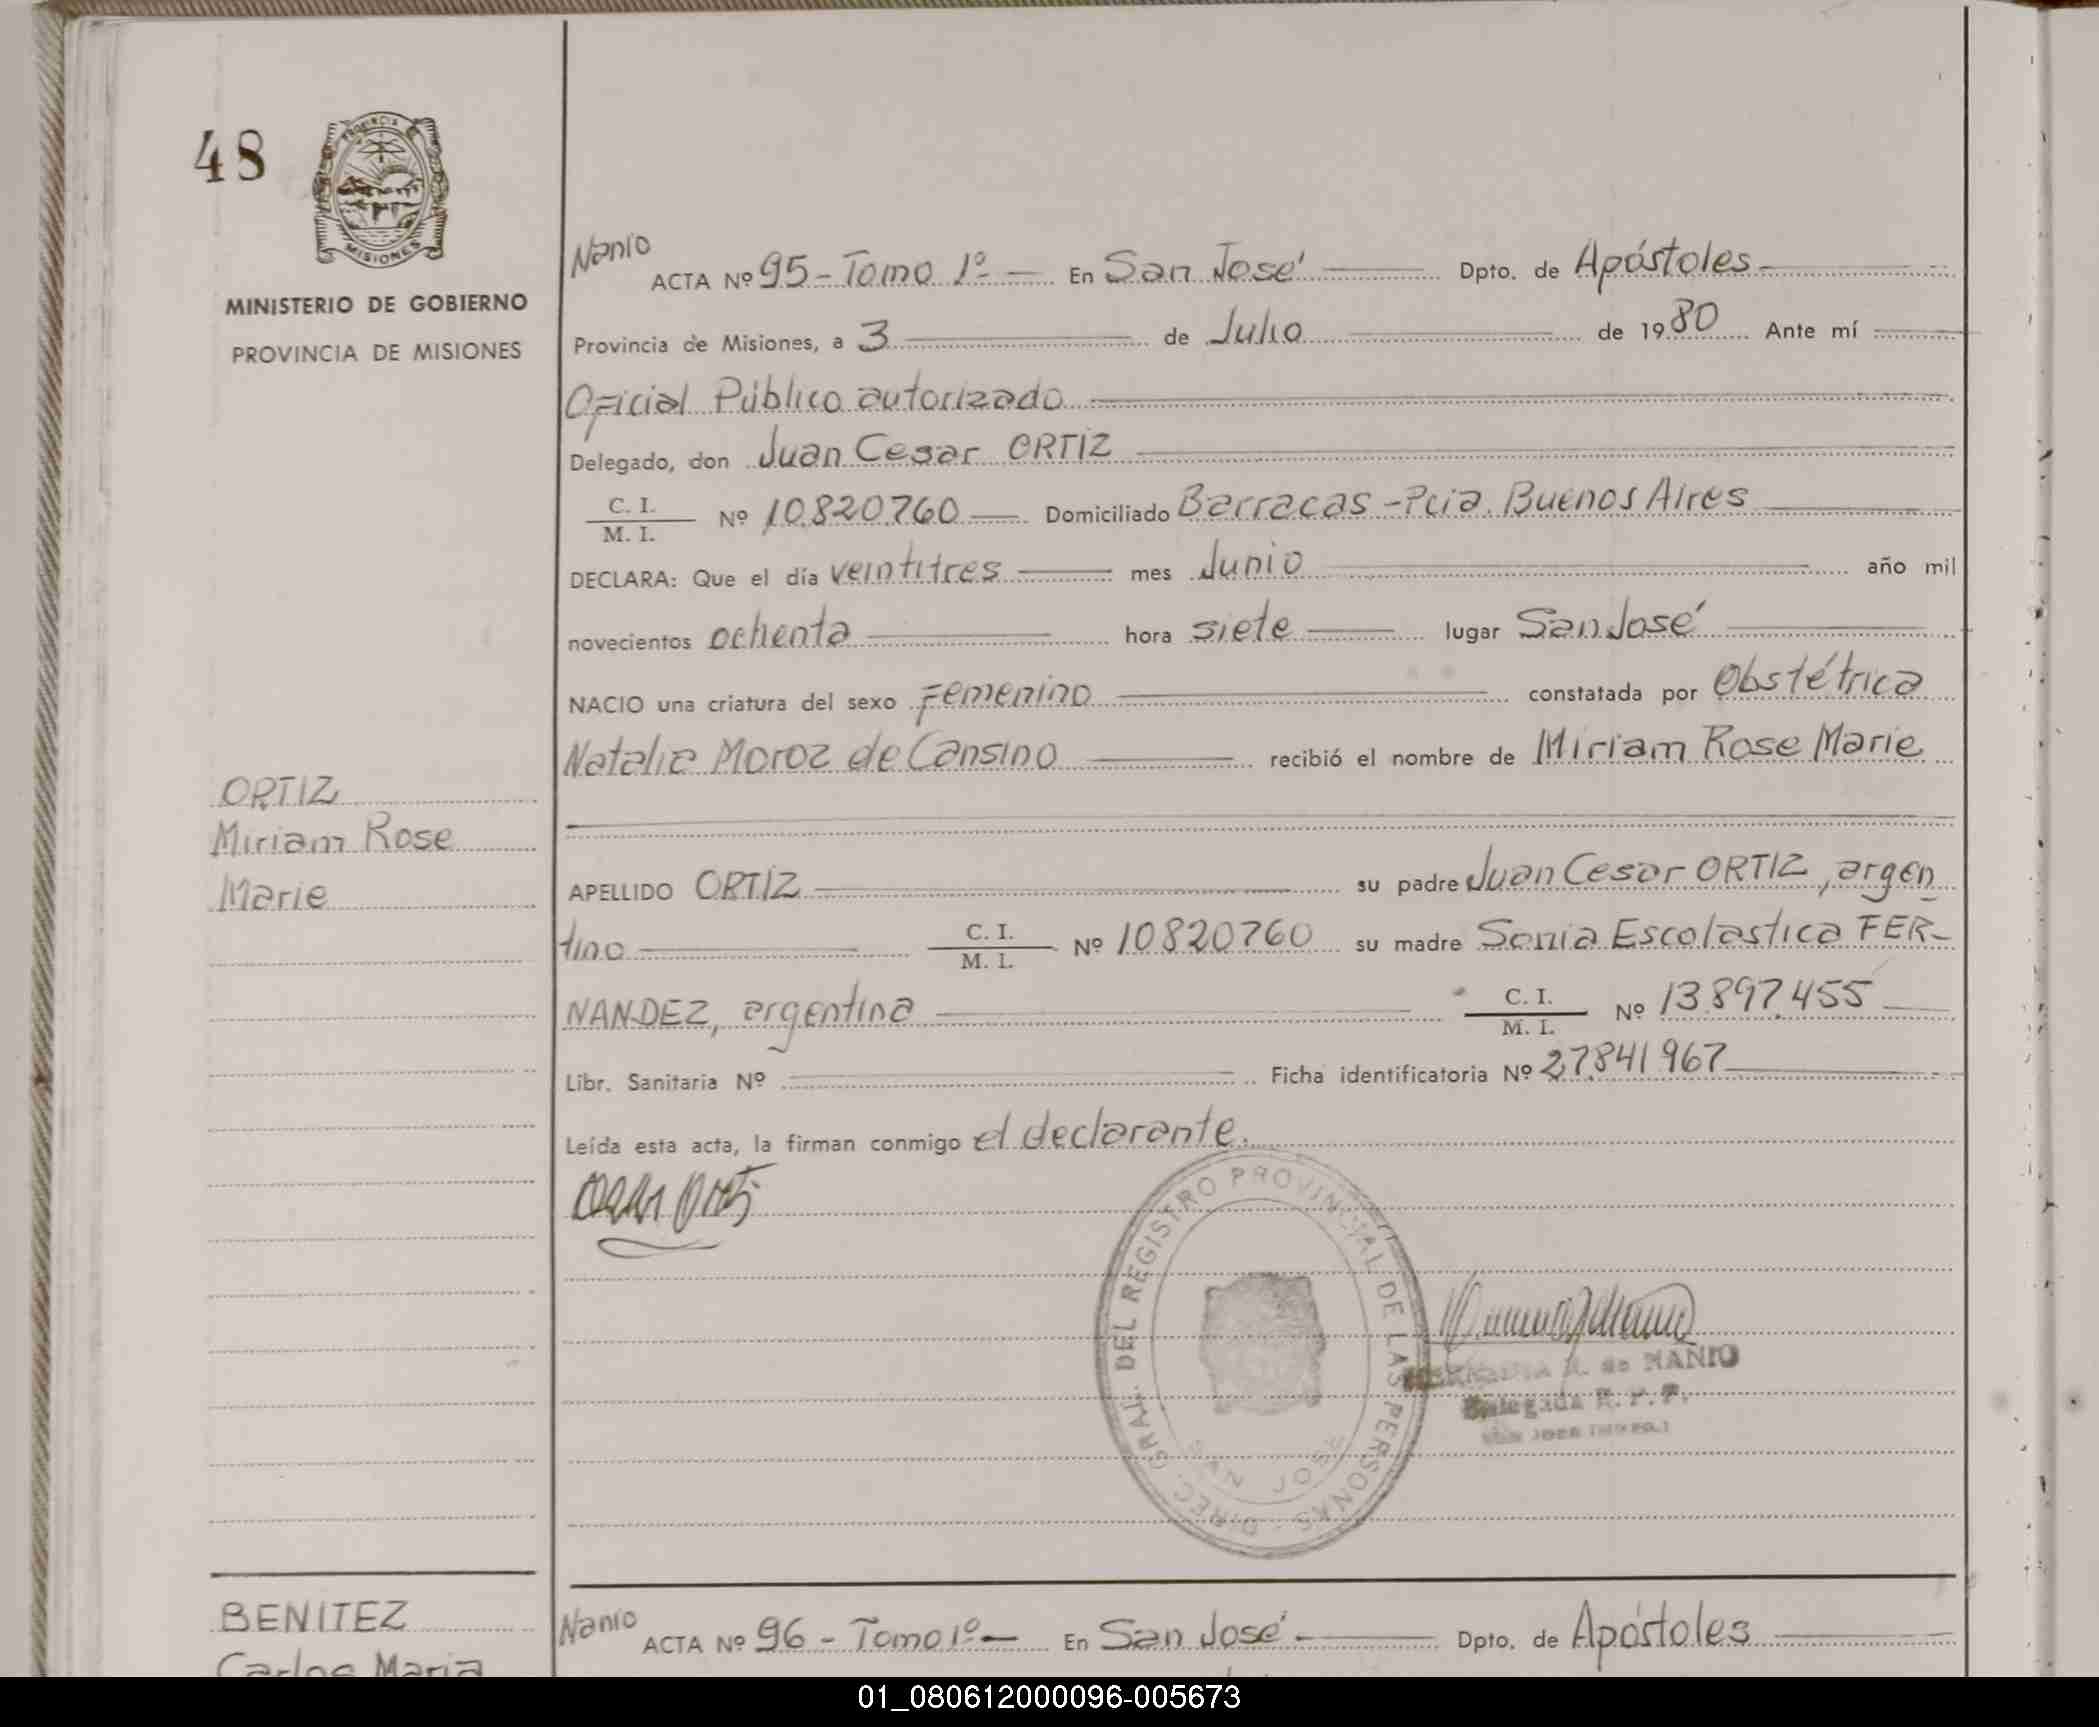 48
PROVINCIA
MISIONES
MINISTERIO DE GOBIERNO
PROVINCIA DE MISIONES
ORTIZ
Miriam Rose
Marie
Nanio
ACTA Nº 95 - Tomo 1º - En San José Dpto. de Apóstoles
Provincia de Misiones, a 3 de Julio de 1980 Ante mí
Oficial Público autorizado
Delegado, don Juan Cesar ORTIZ
C. I.
M. I. Nº 10820760 Domiciliado Barracas - Pcia. Buenos Aires
DECLARA: Que el día veintitres mes Junio año mil
novecientos ochenta hora siete lugar San José
NACIO una criatura del sexo Femenino constatada por Obstétrica
Natalia Moroz de Cansino recibió el nombre de Miriam Rose Marie
APELLIDO ORTIZ su padre Juan Cesar ORTIZ, argen
tino C. I. M. I. Nº 10820760 su madre Sonia Escolastica FER-
NANDEZ, argentina C. I. M. I. Nº 13.897.455
Libr. Sanitaria Nº Ficha identificatoria Nº 27.841967
Leída esta acta, la firman conmigo el declarante.
DIREC. GRAL. DEL REGISTRO PROVINCIAL DE LAS PERSONAS -
SAN JOSE
de NANIO
Delegada R. P. P.
BENITEZ
Carlos Maria
Nanio
ACTA Nº 96 - Tomo 1º - En San José - Dpto. de Apóstoles
01_080612000096-005673